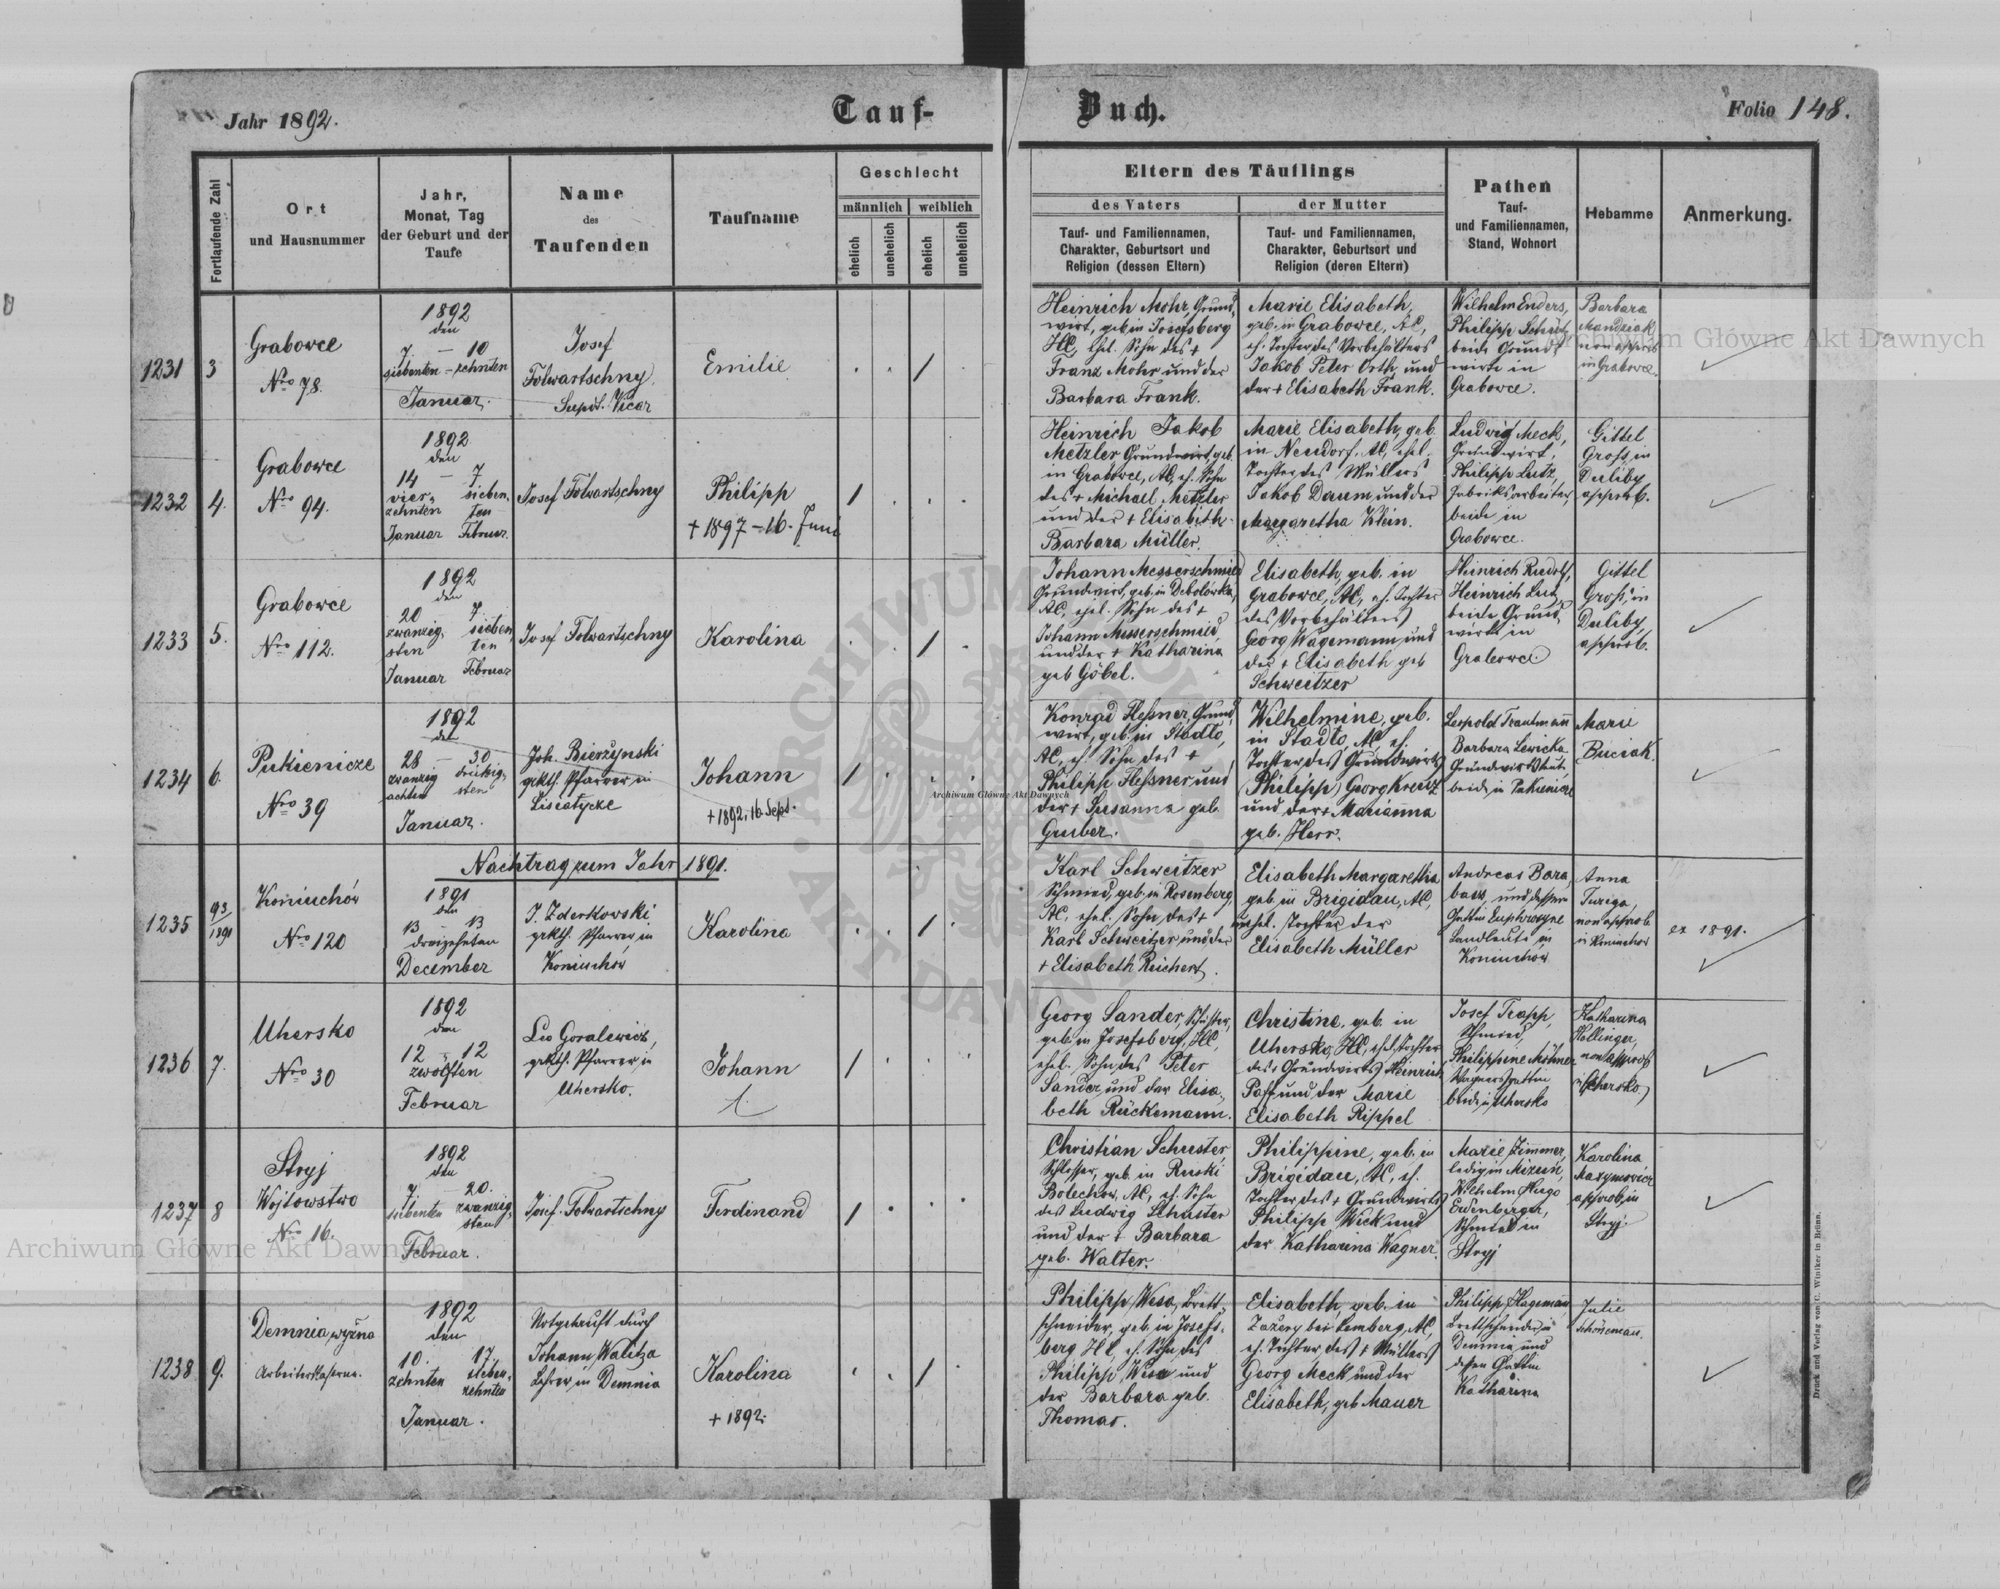 Jahr 1892.
Tauf-
Buch.
Folio 148.
Fortlaufende Zahl
Ort
und Hausnummer
Jahr,
Monat, Tag
der Geburt und der
Taufe
Name
des
Taufenden
Taufname
Geschlecht
männlich
weiblich
ehelich
unehelich
ehelich
unehelich
Eltern des Täuflings
des Vaters
der Mutter
Tauf- und Familiennamen,
Charakter, Geburtsort und
Religion (dessen Eltern)
Tauf- und Familiennamen,
Charakter, Geburtsort und
Religion (deren Eltern)
Pathen
Tauf-
und Familiennamen,
Stand, Wohnort
Hebamme
Anmerkung.
1231
3
Grabowce
Nro 78.
1892
den
7 — 10
siebenten – zehnten
Januar.
Josef
Folwartschny
Supdt. Vicar
Emilie
Heinrich Mohr, Grund-
wirt, geb. in Josefsberg
HC, ehel. Sohn des +
Franz Mohr und der
Barbara Frank.
Marie Elisabeth,
geb. in Grabowce, AC,
eh. Tochter des Vorbehälters
Jakob Peter Orth und
der + Elisabeth Frank.
Wilhelm Enders,
Philipp
beide Grund-
wirte in
Grabowce.
Barbara
Mandziak
non approb
in Grabowce.
1232
4.
Grabowce
Nro 94.
1892
den
14 — 7.
vier- sieben-
zehnten ten
Januar Februar.
Josef Folwartschny
Philipp
+ 1897 – 16. Juni
Heinrich Jakob
Metzler Grundwirt, geb.
in Grabowce, AC, eh. Sohn
des + Michael Metzler
und der + Elisabeth
Barbara Müller.
Marie Elisabeth, geb.
in Neudorf, AC, ehel.
Tochter des Müllers
Jakob Daum und der
Margaretha Klein.
Ludwig Meck,
Grundwirt,
Philipp Lutz,
Fabriksarbeiter,
beide in
Grabowce.
Gittel
Gross, in
Duliby
approb.
1233
5.
Grabowce
Nro 112.
1892
den
20 7
zwanzig- sieben-
sten ten
Januar Februar
Josef Folwartschny
Karolina
Johann Messerschmied
Grundwirt, geb. in Debolówka,
AC, ehel. Sohn des +
Johann Messerschmied,
und der + Katharina
geb Göbel.
Elisabeth, geb. in
Grabowce, AC, eh. Tochter
des Vorbehälters
Georg Wagemann und
der + Elisabeth geb
Schweitzer
Heinrich Rudolf,
Heinrich Lutz,
beide Grund-
wirte in
Grabowce
Gittel
Gross, in
Duliby
approb.
1234
6.
Pukienicze
Nro 39
1892
den
28 — 30
zwanzig dreissig-
achten sten
Januar.
Joh. Bierzynski
grkth. Pfarrer in
Lisiatycze
Johann
+ 1892, 16. Sept.
Konrad Hessner, Grund-
wirt, geb. in Stadlo,
AC, eh. Sohn des +
Philipp Hessner und
der + Susanna geb.
Gruber.
Wilhelmine, geb.
in Stadlo, AC, eh.
Tochter des Grundwirts
(Philipp) Georg Kreutz
und der + Marianna
geb. Herr.
Leopold Trautmann
Barbara Lewicka
beide in Pukienicze
Marie
Buciak.
Nachtrag zum Jahr 1891.
1235
93
1891
Koniuchów
Nro 120
1891
den
13 13
dreizehnten
December
J. Zderkowski
grkth. Pfarrer in
Koniuchow
Karolina
Karl Schweitzer
Schmied, geb. in Rosenberg
AC, ehel. Sohn des +
Karl Schweitzer und der
+ Elisabeth Reichert.
Elisabeth Margaretha
geb in Brigidau, AC,
unehel. Tochter der
Elisabeth Müller
Andreas Bara-
basz, und dessen
Gattin Euphrosyne
Landleute in
Koniuchów
Anna
Turega,
non approb.
in Koniuchow
ex 1891.
1236
7.
Uhersko
Nro 30
1892
den
12 „ 12
zwölften
Februar
Leo Goralewicz,
grkth. Pfarrer in
Uhersko.
Johann
Georg Sander, Schuster,
geb. in Josefsberg, HC,
ehel. Sohn des Peter
Sander, und der Elisa-
beth Rückemann.
Christine, geb. in
Uhersko, HC, ehel. Tochter
des Grundwirts Heinrich
Paff und der Marie
Elisabeth Rippel
Josef Trapp,
Schmied,
Philippine Möhner
Wagnersgattin
beide in Uhersko
Katharina
Hollinger,
non approb
in Uhersko
1237
8
Stryj
Wojtowstwo
Nro 16.
1892
den
7 — 20.
siebenten zwanzig-
sten
Februar.
Josef Folwartschny
Ferdinand
Christian Schuster,
Schlosser, geb. in Ruski
Bolechow, AC, eh. Sohn
des Ludwig Schuster
und der + Barbara
geb. Walter.
Philippine, geb. in
Brigidau, AC, eh.
Tochter des + Grundwirts
Philipp Wick und
der Katharina Wagner.
Marie Zimmer,
ledig in Mizun,
Wilhelm Hugo
Erdenberger,
Schmied in
Stryj
Karolina
Maxymowicz
approb, in
Stryj.
1238
9.
Demnia wyżna
Arbeiterkaserne.
1892
den
10. 17.
zehnten sieben-
zehnten
Januar.
Notgetauft durch
Johann Walitza
Lehrer in Demnia
Karolina
+ 1892.
Philipp Wesa, Brett-
schneider, geb. in Josefs-
berg HC, eh. Sohn des
Philipp Wesa und
der Barbara geb.
Thomas.
Elisabeth, geb. in
bei Lemberg, AC,
eh. Tochter des + Müllers
Georg Meck und der
Elisabeth, geb Mauer
Philipp Hagemann
Brettschneider in
Demnia und
dessen Gattin
Katharina
Julie
Schönemann.
Druck und Verlag von C. Winiker in Brünn.
Archiwum Główne Akt Dawnych
Archiwum Główne Akt Dawnych
Archiwum Główne Akt Dawnych